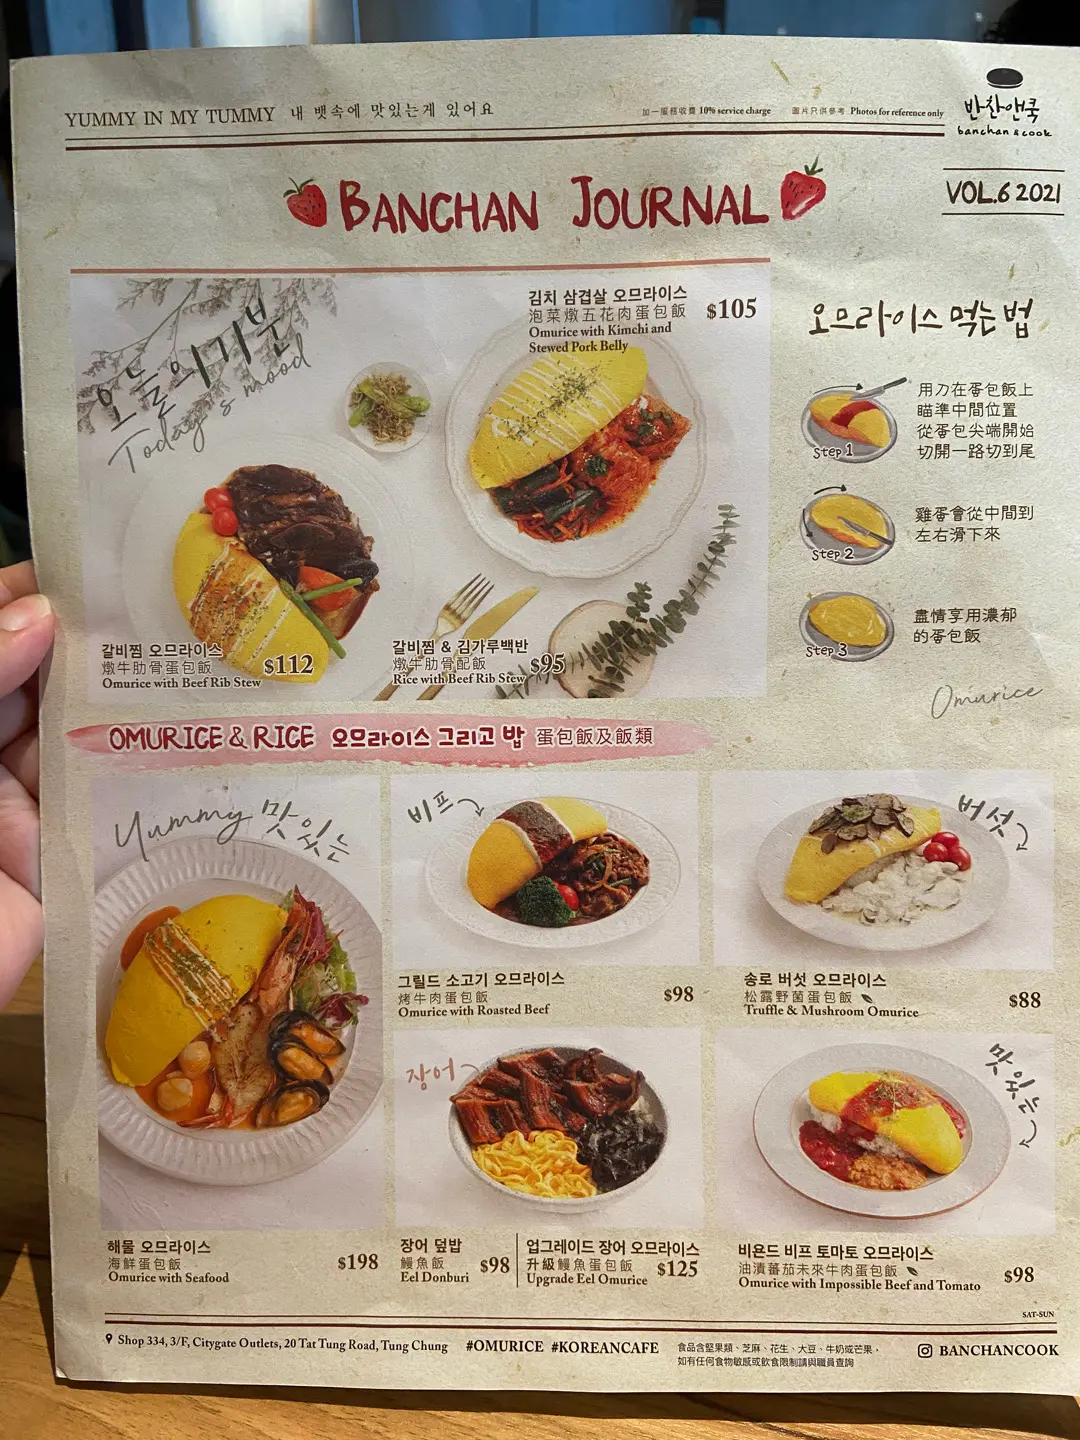 YUMMY IN MY TUMMY 내 뱃속에 맛있는게 있어요
加一服務收費 10% service charge 圖片只供參考 Photos for reference only
반찬앤쿡
banchan & cook
BANCHAN JOURNAL
VOL.6 2021
오늘의기분
Today's mood
김치 삼겹살 오므라이스
泡菜燉五花肉蛋包飯
Omurice with Kimchi and
Stewed Pork Belly
$105
갈비찜 오므라이스
燉牛肋骨蛋包飯
Omurice with Beef Rib Stew
$112
갈비찜 & 김가루백반
燉牛肋骨配飯
Rice with Beef Rib Stew
$95
오므라이스 먹는 법
Step 1
用刀在蛋包飯上
瞄準中間位置
從蛋包尖端開始
切開一路切到尾
Step 2
雞蛋會從中間到
左右滑下來
Step 3
盡情享用濃郁
的蛋包飯
Omurice
OMURICE & RICE 오므라이스 그리고 밥 蛋包飯及飯類
Yummy 맛있는
해물 오므라이스
海鮮蛋包飯
Omurice with Seafood
$198
비프
그릴드 소고기 오므라이스
烤牛肉蛋包飯
Omurice with Roasted Beef
$98
버섯
송로 버섯 오므라이스
松露野菌蛋包飯
Truffle & Mushroom Omurice
$88
장어
장어 덮밥
鰻魚飯
Eel Donburi
$98
업그레이드 장어 오므라이스
升級鰻魚蛋包飯
Upgrade Eel Omurice
$125
맛있는
비욘드 비프 토마토 오므라이스
油漬蕃茄未來牛肉蛋包飯
Omurice with Impossible Beef and Tomato
$98
SAT-SUN
Shop 334, 3/F, Citygate Outlets, 20 Tat Tung Road, Tung Chung
#OMURICE #KOREANCAFE
食品含堅果類、芝麻、花生、大豆、牛奶或芒果，
如有任何食物敏感或飲食限制請與職員查詢
BANCHANCOOK